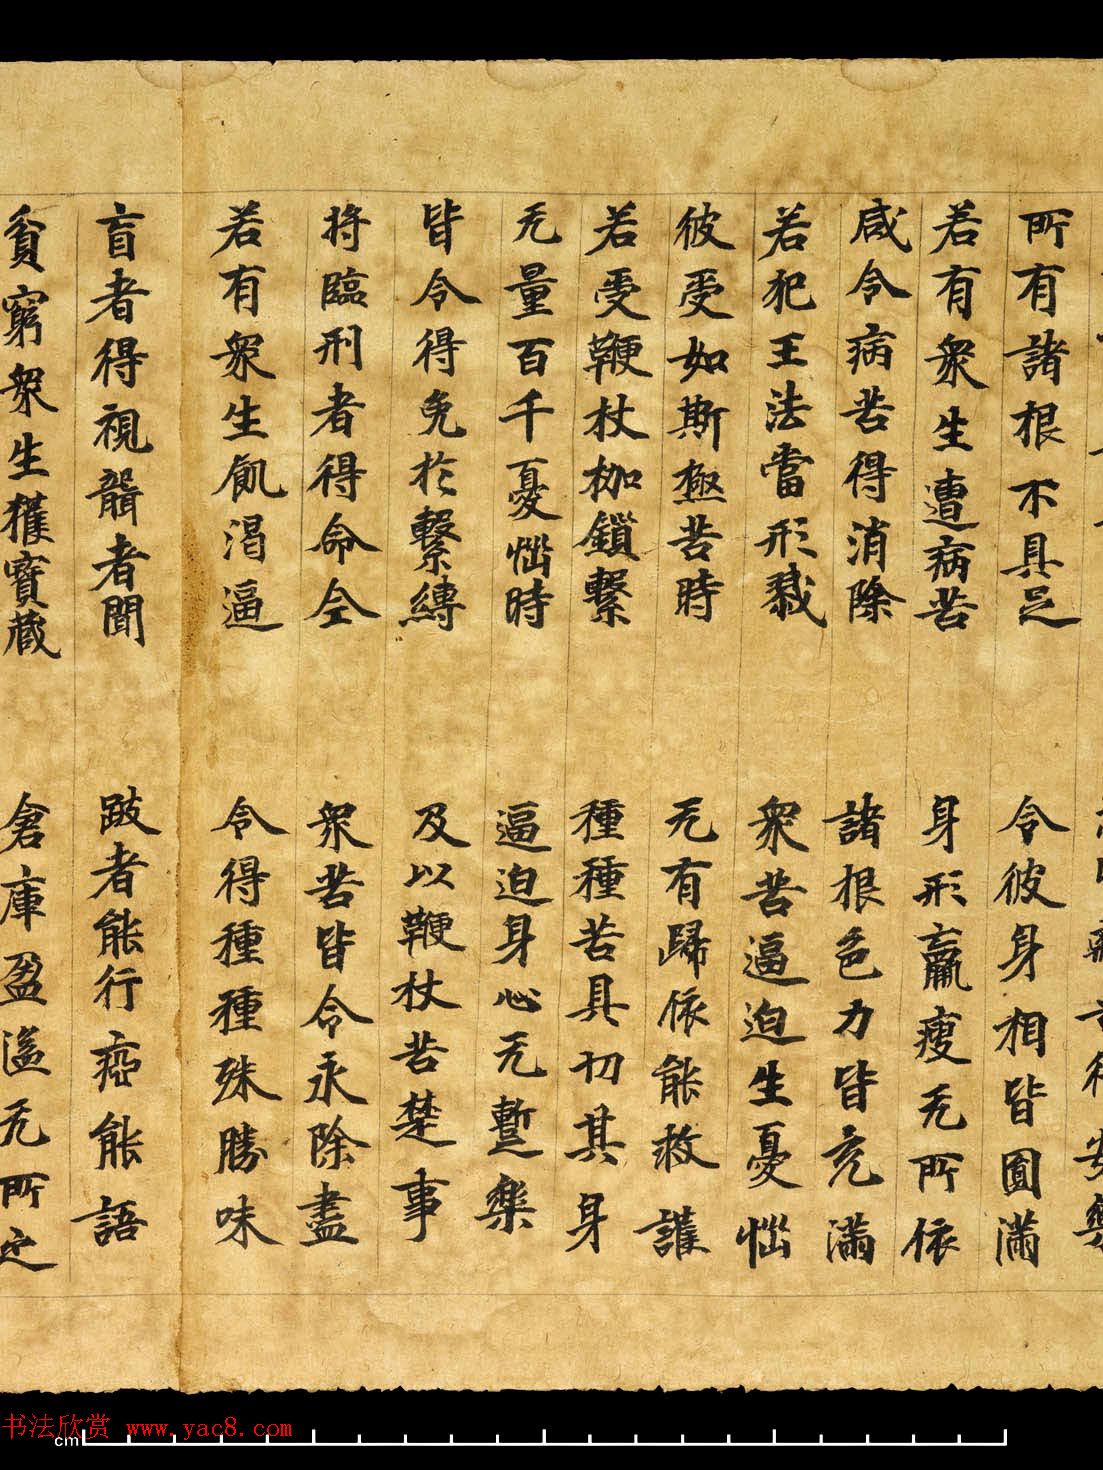 所有諸根不具足　令彼身相皆圓滿
若有衆生遭病苦　身形羸瘦无所依
咸令病苦得消除　諸根色力皆充滿
若犯王法當形戮　衆苦逼迫生憂惱
彼受如斯極苦時　无有歸依能救護
若受鞭杖枷鎖繫　種種苦具切其身
无量百千憂惱時　逼迫身心无暫樂
皆令得免於繫縛　及以鞭杖苦楚事
將臨刑者得命全　衆苦皆令永除盡
若有衆生飢渴逼　令得種種殊勝味
盲者得視聾者聞　跛者能行瘂能語
貧窮衆生獲寶藏　倉庫盈溢无所乏
书法欣赏 www.yac8.com
cm